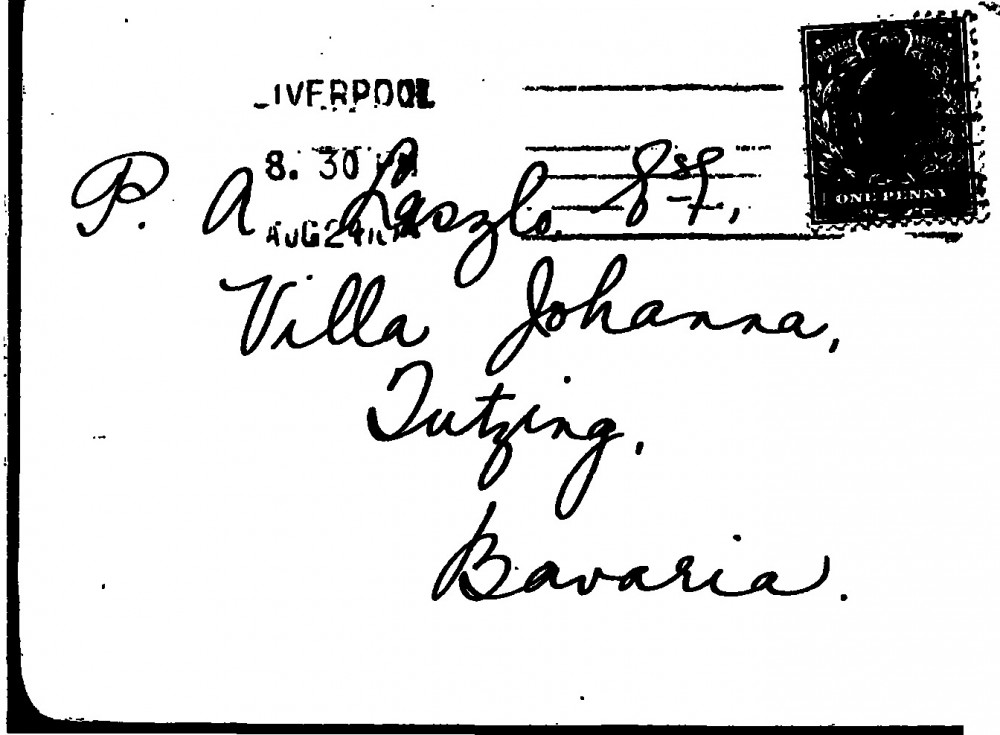 LIVERPOOL
8. 30 PM
AUG 24
POSTAGE REVENUE
ONE PENNY
P. A Laszlo. Esq,
Villa Johanna,
Tutzing,
Bavaria.